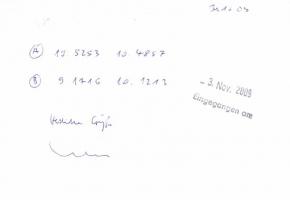 Ⓐ 19 5253 10 4857
Ⓑ 9 1716 10. 1213
- 3. Nov. 2009
Eingegangen am
Herzliche Grüße